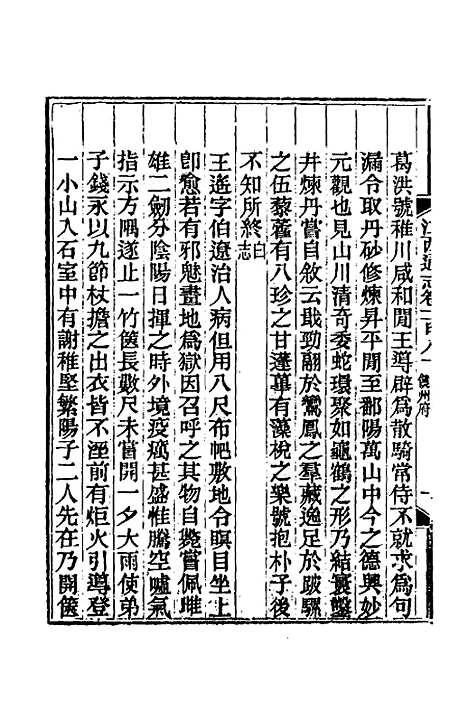 江西通志卷一百八 饒州府 一
葛洪號稚川咸和閒王導辟爲散騎常侍不就求爲句
漏令取丹砂修煉昇平閒至鄱陽萬山中今之德興妙
元觀也見山川清奇委蛇環聚如龜鶴之形乃結
井煉丹嘗自敘云戢勁翮於鷽鳳之羣藏逸足於跛騾
之伍藜藿有八珍之甘蓬蓽有藻梲之樂號抱朴子後
不知所終白志
王遙字伯遼治人病但用八尺布帊敷地令瞑目坐上
卽愈若有邪魅畫地爲獄因召呼之其物自斃嘗佩雌
雄二劒分陰陽日揮之時外境疫癘甚盛惟騰空噓氣
指示方隅遂止一竹篋長數尺未嘗開一夕大雨使弟
子錢永以九節杖擔之出衣皆不溼前有炬火引導登
一小山入石室中有謝稚堅繁陽子二人先在乃開篋